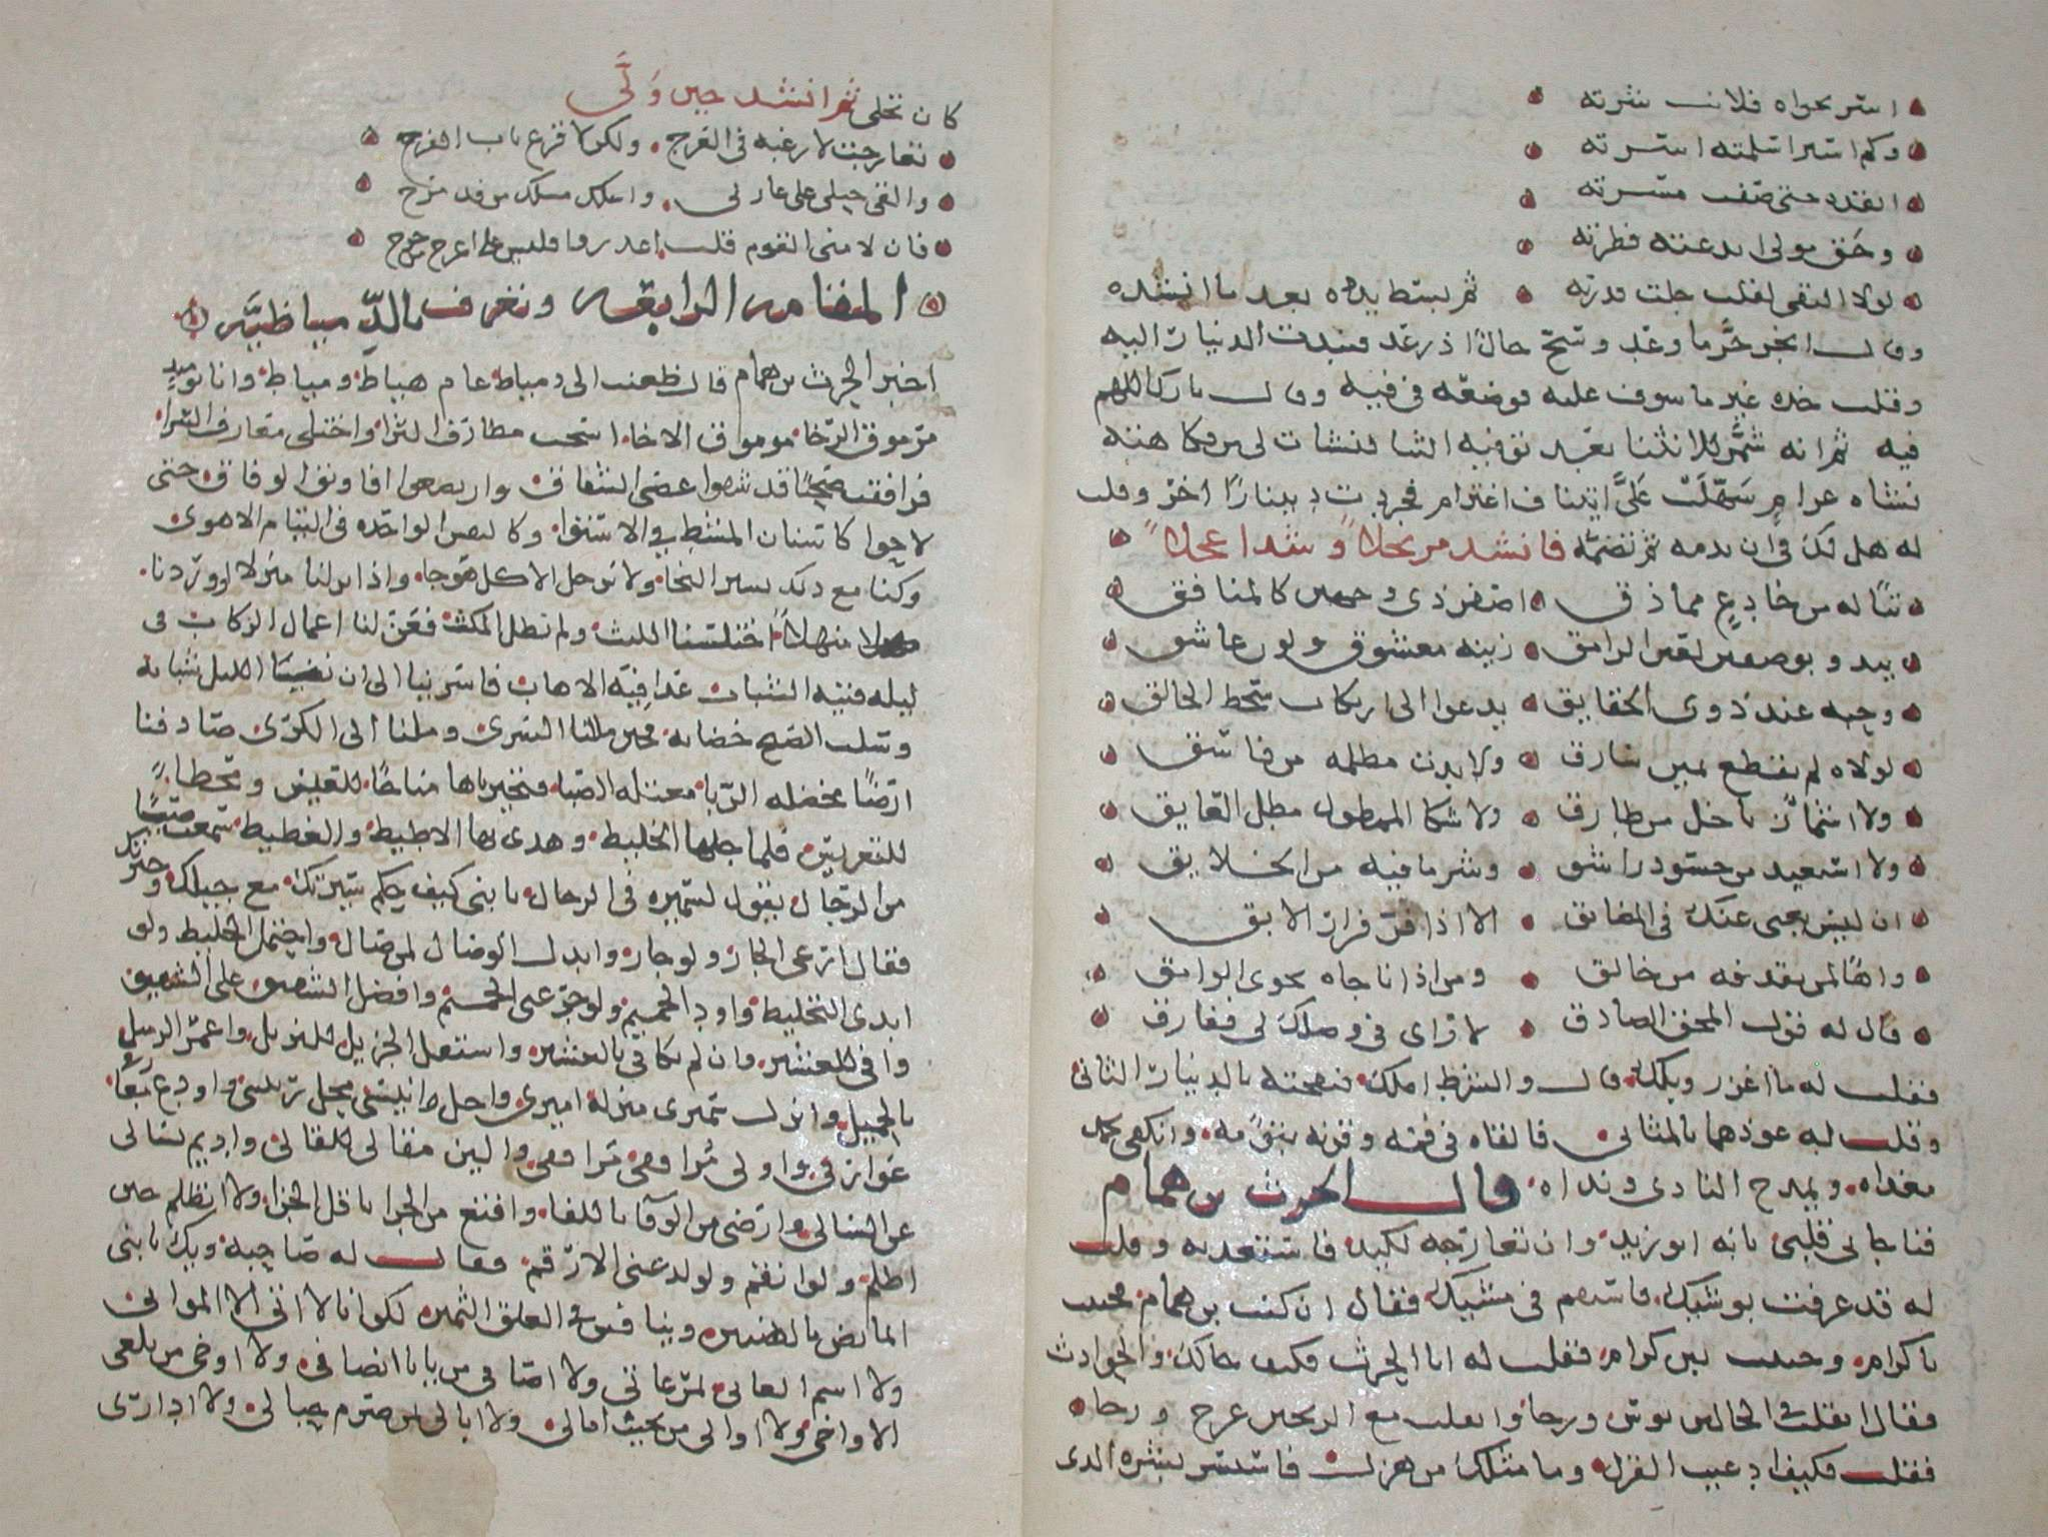 اسر نجواه فلانت شرته
وكم اسير اسلمته اسرته
انقذه حتى صفت مسرته
وحق مولى ابدعته فطرته
لولا التقى لقلت جلت قدرته ثم بسط يده بعد ما انشده
وقال انجز حر ما وعد وسح خال اذ رعد فنبذت الدينار اليه
وقلت خذه غير ماسوف عليه فوضعه في فيه وقال بارك اللهم
فيه ثم انه شمر للانثنا بعد توفيه الثنا فنشات لي من فكاهته
نشاه غرام سهلت علي ايتناف اغترام فجردت دينارا اخر وقلت
له هل لك في ان تذمه ثم تضمه فانشد مرتجلا وشدا عجلا
تبا له من خادع مماذق اصفر ذي وجهين كالمنافق
يبدو بوصفين لعين الرامق زينه معشوق ولون عاشق
وحبه عند ذوي الحقايق يدعوا الى ارتكاب سخط الخالق
لولاه لم تقطع يمين سارق ولا بدت مظلمه من فاسق
ولا اشماز باخل من طارق ولا شكا الممطول مطل العايق
ولا استعيد من حسود راشق وشر ما فيه من الخلايق
ان ليس يغني عنك في المضايق الا اذا فر فرار الابق
واها لمن يقذفه من حالق ومن اذا ناجاه نجوى الوامق
قال له قول المحق الصادق لا راى في وصلك لي ففارق
فقلت له ما اغزر وبلك قال والشرط املك فنفحته بالدينار الثاني
وقلت له عوذهما بالمثاني فالقاه في فمه وقرنه بتوامه وانكفى يحمد
مغداه ويمدح النادي ونداه قال الحرث بن همام
فناجاني قلبي بانه ابو زيد وان تعارجه لكيد فاستعدته وقلت
له قد عرفت بوشيك فاستقم في مشيك فقال ان كنت بن همام فحييت
باكرام وحييت بين كرام فقلت له انا الحرث فكيف حالك والحوادث
فقال اتقلب في الحالين بوس ورخا وانقلب مع الريحين زعزع ورخاه
فقلت فكيف ادعيت القزل وما مثلك من هزل فاستسر بشره الذي
كان تجلى ثم انشد حين ولى
تعارجت لا رغبه في العرج ولكن لا قرع باب الفرج
والقي حبلي على غاربي واسلك مسلك من قد مرج
فان لامني القوم قلت اعذروا فليس على اعرج من حرج
المقامه الرابعه وتعرف بالدمياطيه
اخبر الحرث بن همام قال ظعنت الى دمياط عام هياط ومياط وانا يوميذ
مرموق الرخا موموق الاخا اسحب مطارف الثرا واجتلي معارف السرا
فرافقت صحبا قد شقوا عصى الشقاق وارتضعوا افاويق الوفاق حتى
لاحوا كاسنان المشط في الاستوا وكالنفس الواحده في التيام الاهوى
وكنا مع ذلك نسير النجا ولا نرحل الا كل هوجا واذا نزلنا منزلا او وردنا
منهلا اختلسنا اللبث ولم نطل المكث فعن لنا اعمال الركاب في
ليله فتيه الشباب غدافيه الاهاب فاسرينا الى ان نضا الليل شبابه
وسلت الصبح خضابه فحين مللنا السرى وملنا الى الكرى صادفنا
ارضا مخضله الربا معتله الصبا فتخيرناها مناخا للعيس ومحطا
للتعريس فلما حلها الخليط وهدى بها الاطيط والغطيط سمعت صيتا
من الرجال يقول لسميره في الرحال يا بني كيف حكم سيرتك مع جيلك وجيرتك
فقال ارعى الجار ولو جار وابذل الوصال لمن صال واحتمل الخليط ولو
ابدى التخليط واود الحميم ولو جرعني الحميم وافضل الشفيق على الشقيق
وافي للعشير وان لم يكافي بالعشير واستقل الجزيل للنزيل واغمر الزميل
بالجميل وانزل سميري منزله اميري واحل انيسي محل رييسي واودع معارفي
عوارفي واولي مرافقي مرافقي والين مقالي للقالي واديم تسالي
عن السالي وارضى من الوفا باللفا واقنع من الجزا باقل الاجزا ولا اتظلم حين
اظلم ولا انقم ولو لدغني الارقم فقال له صاحبه ويك يا بني
انما يضن بالضنين وينافس في العلق الثمين لكن انا لا اتي الا المواتي
ولا اسم العاتي بمراعاتي ولا اصافي من يابى انصافي ولا اواخي من يلغي
الاواخي ولا اوالي من يخيب امالي ولا ابالي بمن صرم حبالي ولا اداري